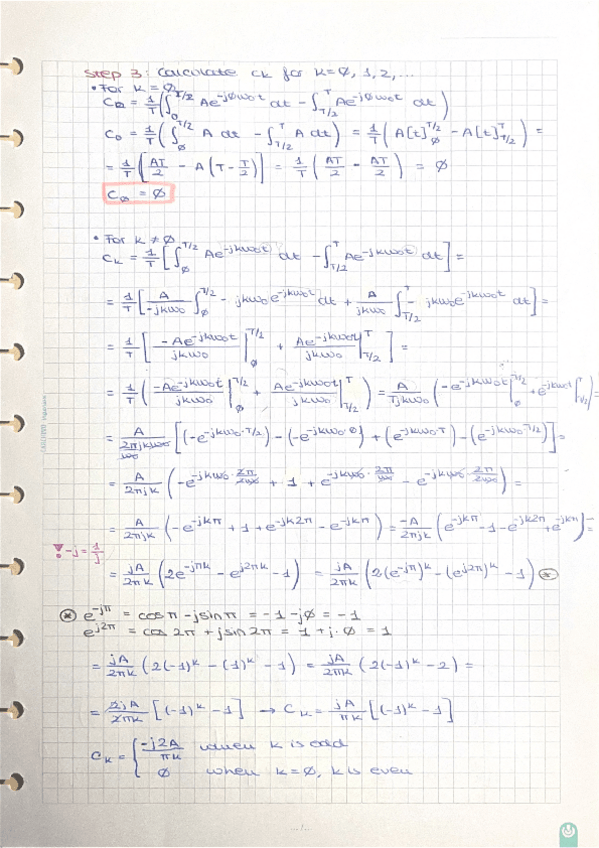 Step 3: Calculate ck for k=∅, 1, 2, ...
• For k = ∅
C∅ = 1/T (∫_0^{T/2} Ae^{-j∅ω₀t} dt - ∫_{T/2}^{T} Ae^{-j∅ω₀t} dt)
C₀ = 1/T (∫_∅^{T/2} A dt - ∫_{T/2}^{T} A dt) = 1/T (A[t]_∅^{T/2} - A[t]_{T/2}^{T}) =
= 1/T [AT/2 - A(T - T/2)] = 1/T (AT/2 - AT/2) = ∅
C∅ = ∅
• For k ≠ ∅
Ck = 1/T [∫_∅^{T/2} Ae^{-jkω₀t} dt - ∫_{T/2}^{T} Ae^{-jkω₀t} dt] =
= 1/T [A/(-jkω₀) ∫_∅^{T/2} - jkω₀e^{-jkω₀t} dt + A/(jkω₀) ∫_{T/2}^{T} - jkω₀e^{-jkω₀t} dt] =
= 1/T [-Ae^{-jkω₀t}/(jkω₀) |_∅^{T/2} + Ae^{-jkω₀t}/(jkω₀) |_{T/2}^{T}] =
= 1/T (-Ae^{-jkω₀t}/(jkω₀) |_∅^{T/2} + Ae^{-jkω₀t}/(jkω₀) |_{T/2}^{T}) = A/(Tjkω₀) (-e^{-jkω₀t} |_∅^{T/2} + e^{-jkω₀t} |_{T/2}^{T}) =
= A/(2πjkω₀/ω₀) [(-e^{-jkω₀·T/2}) - (-e^{-jkω₀·∅}) + (e^{-jkω₀·T}) - (e^{-jkω₀·T/2})] =
= A/(2πjk) (-e^{-jkω₀·2π/2ω₀} + 1 + e^{-jkω₀·2π/ω₀} - e^{-jkω₀·2π/2ω₀}) =
= A/(2πjk) (-e^{-jkπ} + 1 + e^{-jk2π} - e^{-jkπ}) = -A/(2πjk) (e^{-jkπ} - 1 - e^{-jk2π} + e^{-jkπ}) =
! -j = 1/j
= jA/(2πk) (2e^{-jπk} - e^{j2πk} - 1) = jA/(2πk) (2(e^{-jπ})^k - (e^{j2π})^k - 1) ⊛
⊛ e^{-jπ} = cos π - j sin π = -1 - j∅ = -1
e^{j2π} = cos 2π + j sin 2π = 1 + j·∅ = 1
= jA/(2πk) (2(-1)^k - (1)^k - 1) = jA/(2πk) (2(-1)^k - 2) =
= 2jA/(2πk) [(-1)^k - 1] → Ck = jA/(πk) [(-1)^k - 1]
Ck = { -j2A/(πk) when k is odd
∅ when k=∅, k is even